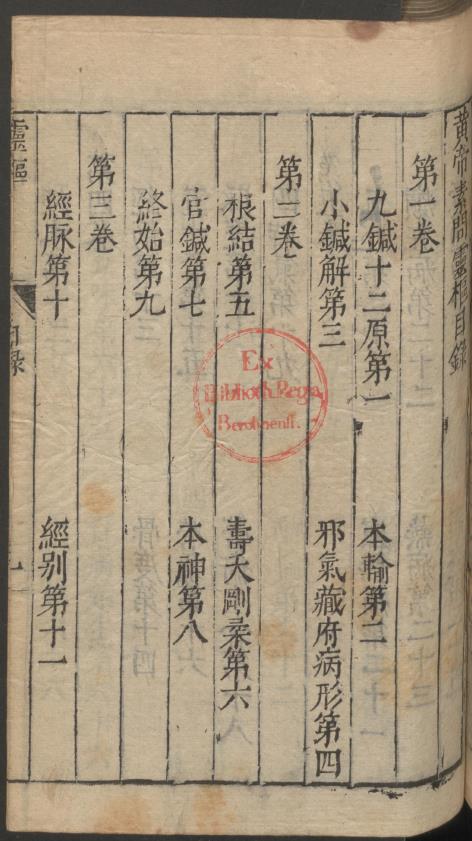 黃帝素問靈樞目錄
第一卷
九鍼十二原第一 本輸第二
小鍼解第三 邪氣藏府病形第四
第二卷
根結第五 壽夭剛柔第六
官鍼第七 本神第八
終始第九
第三卷
經脉第十 經别第十一
靈樞 目錄
Ex
Biblioth. Regia
Berolinenſi.